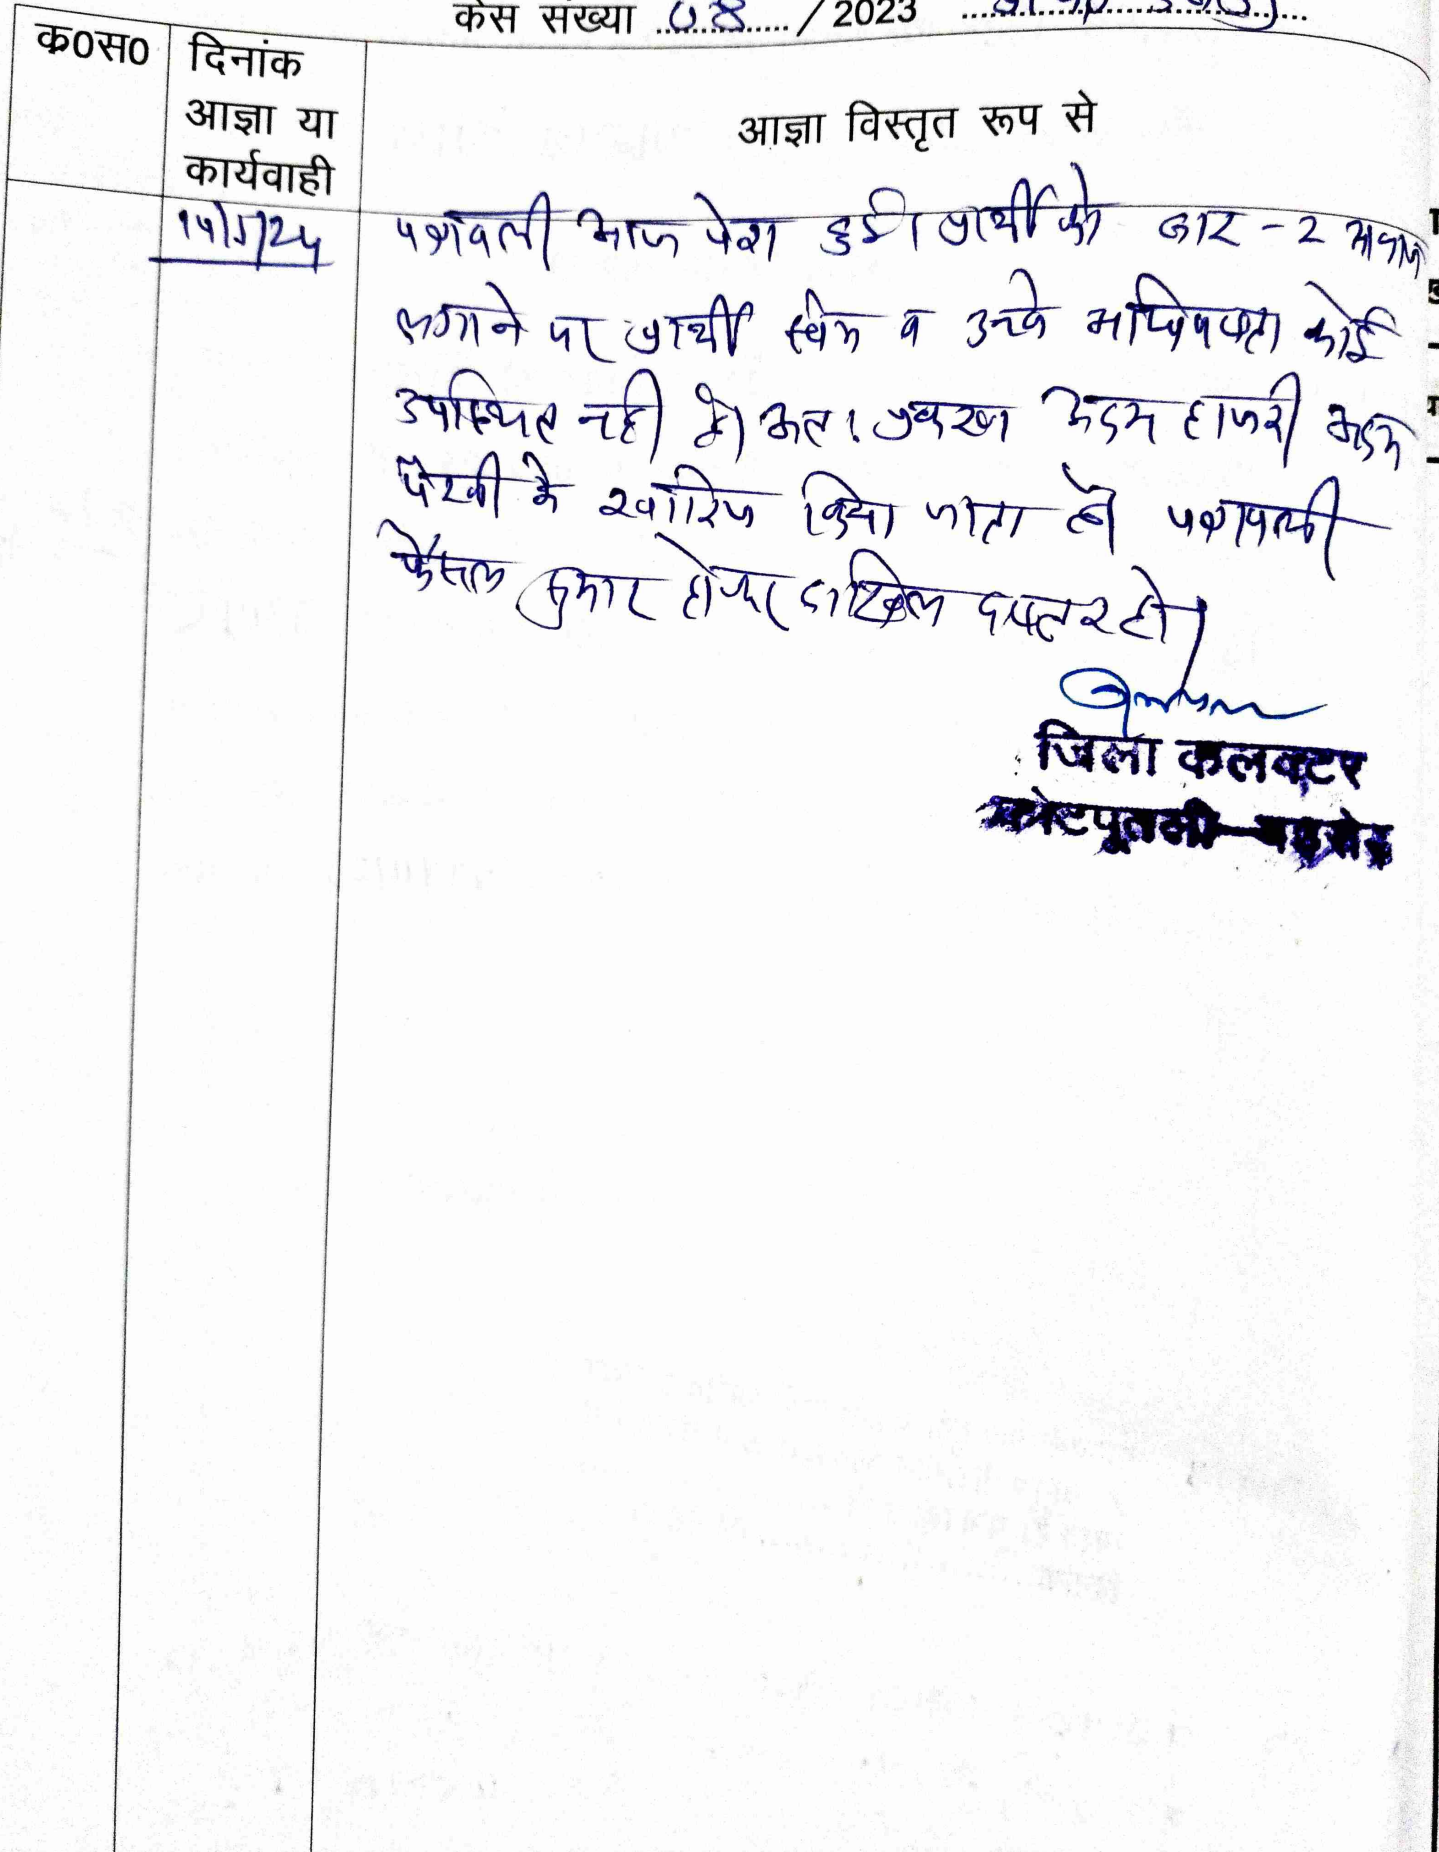 केस संख्या 08 /2023
क०स०
दिनांक
आज्ञा या
कार्यवाही
आज्ञा विस्तृत रूप से
पत्रावली आज पेश हुई। प्रार्थी को बार-2 आवाज
लगाने पर प्रार्थी स्वयं व उनके अधिवक्ता कोई
उपस्थित नही है। अतः प्रकरण अदम हाजरी अदम
पैरवी के खारिज किया जाता है। पत्रावली
फैसल शुमार होकर दाखिल दफ्तर हो।
जिला कलक्टर
कोटपूतली-बहरोड़